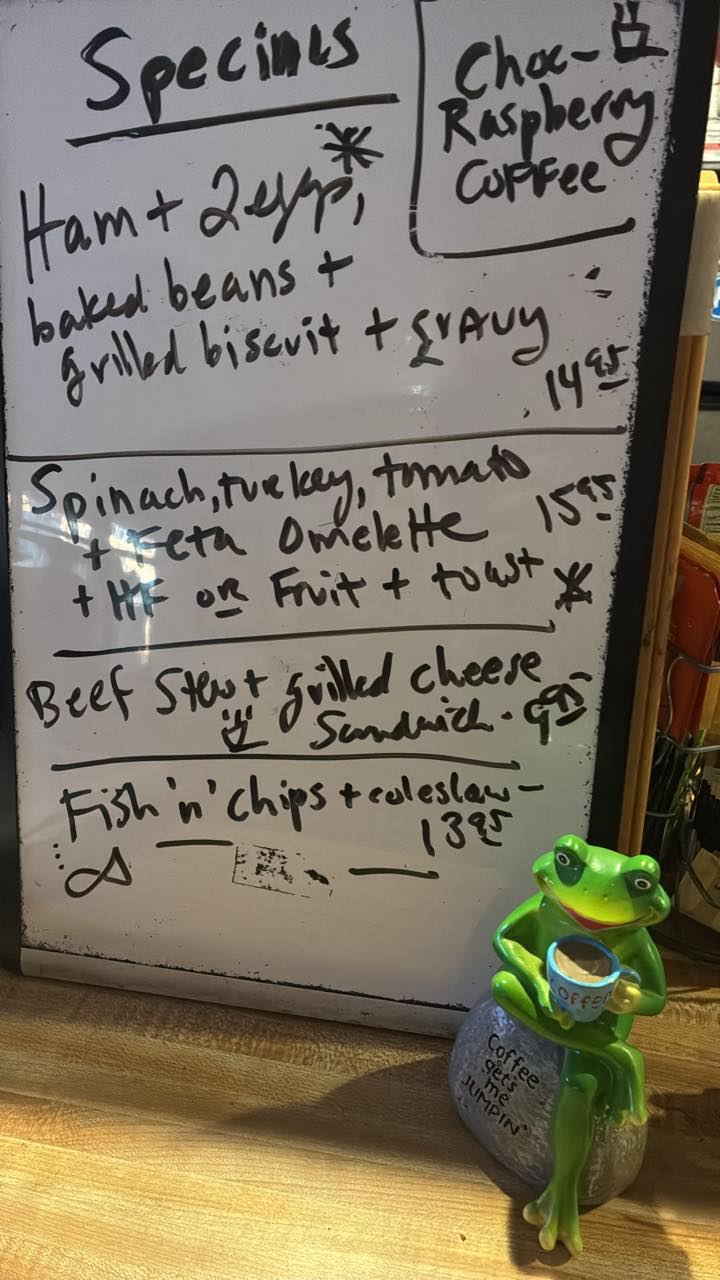 Specials
Choc-
Raspberry
Coffee
Ham + 2 eggs,
baked beans +
grilled biscuit + gravy
14 95
Spinach, turkey, tomato
+ Feta Omelette 15 95
+ HF or Fruit + toast
Beef Stew + grilled cheese
Sandwich - 9 95
Fish 'n' Chips + coleslaw -
13 95
COFFEE
Coffee
gets
me
JUMPIN'